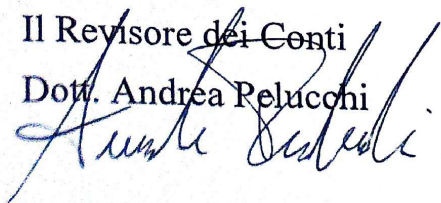 Il Revisore dei Conti
Dott. Andrea Pelucchi